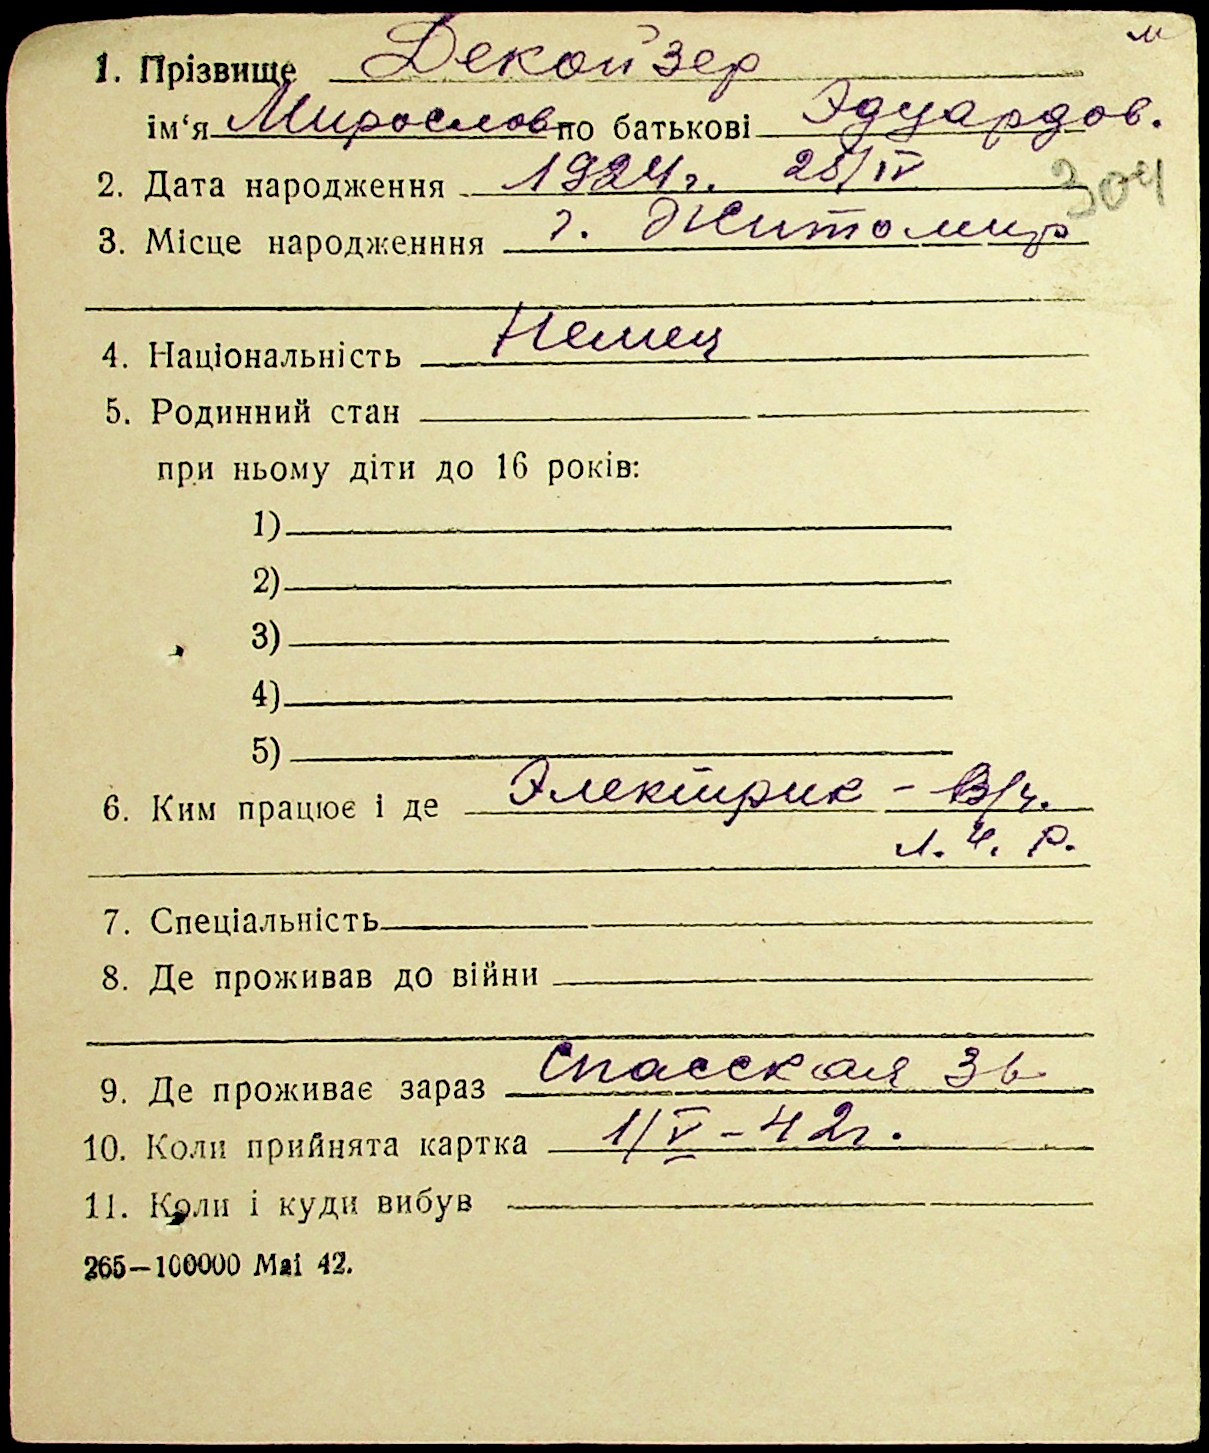 м
1. Прізвище Декойзер
ім‘я Мирослав по батькові Эдуардов.
2. Дата народження 1924г. 25/IV
304
3. Місце народженння г. Житомир
4. Національність Немец
5. Родинний стан
при ньому діти до 16 років:
1)
2)
3)
4)
5)
6. Ким працює і де Электрик - В/ч.
Л. Ч. Р.
7. Спеціальність
8. Де проживав до війни
9. Де проживає зараз Спасская 3
10. Коли прийнята картка 1/V - 42г.
11. Коли і куди вибув
265—100000 Mai 42.